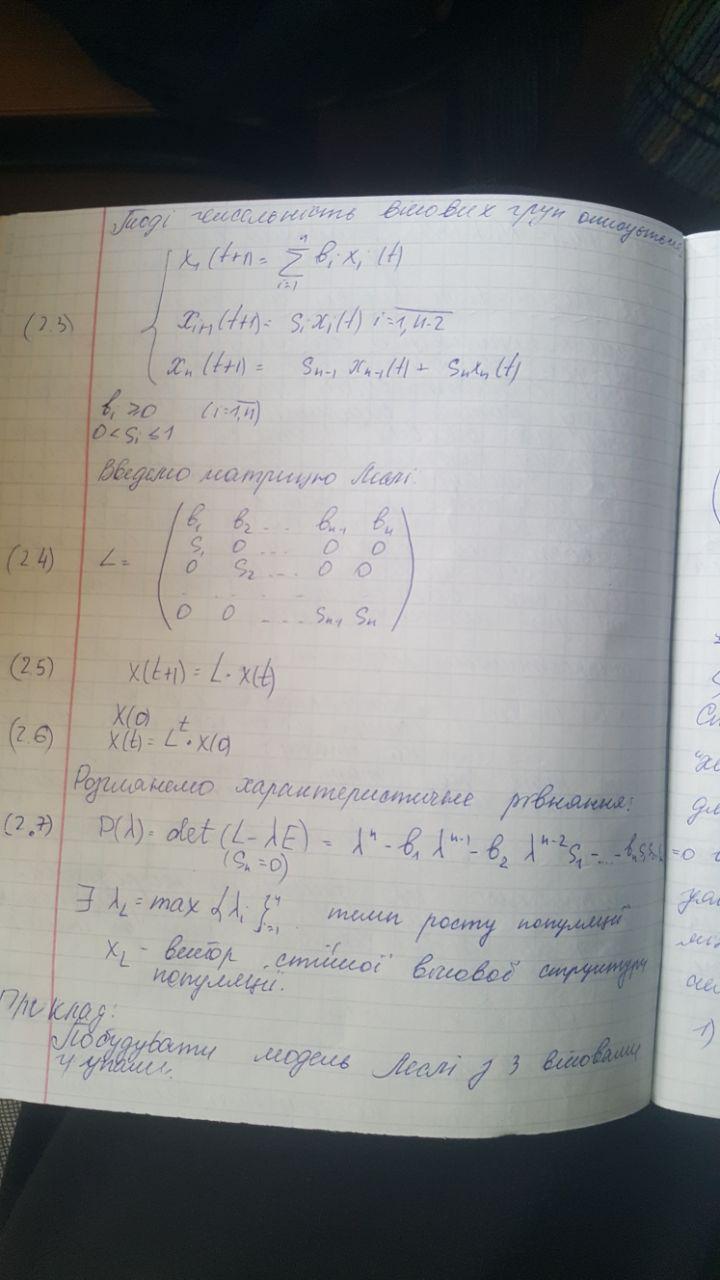 Тоді чисельність вікових груп описується
x₁(t+1) = Σⁿᵢ₌₁ bᵢ xᵢ (t)
(2.3) xᵢ₊₁(t+1) = sᵢ xᵢ(t) i = 1,n-2
xₙ(t+1) = sₙ₋₁ xₙ₋₁(t) + sₙxₙ(t)
bᵢ ≥ 0 (i = 1,n)
0 < sᵢ ≤ 1
Введемо матрицю Леслі.
b₁ b₂ ... bₙ₋₁ bₙ
s₁ 0 ... 0 0
(2.4) L = 0 s₂ ... 0 0
. . . . . . .
0 0 ... sₙ₋₁ sₙ
(2.5) x(t+1) = L · x(t)
x(0)
(2.6) x(t) = Lᵗ · x(0)
Розглянемо характеристичне рівняння:
(2.7) P(λ) = det (L - λE) = λⁿ - b₁ λⁿ⁻¹ - b₂ λⁿ⁻² s₁ - ... - bₙ s₁ s₂ = 0
(sₙ = 0)
∃ λ_L = max {λᵢ}ⁿᵢ₌₁ темп росту популяції
x_L - вектор стійкої вікової структури
популяції.
Приклад:
Побудувати модель Леслі з 3 віковими
групами.
1)